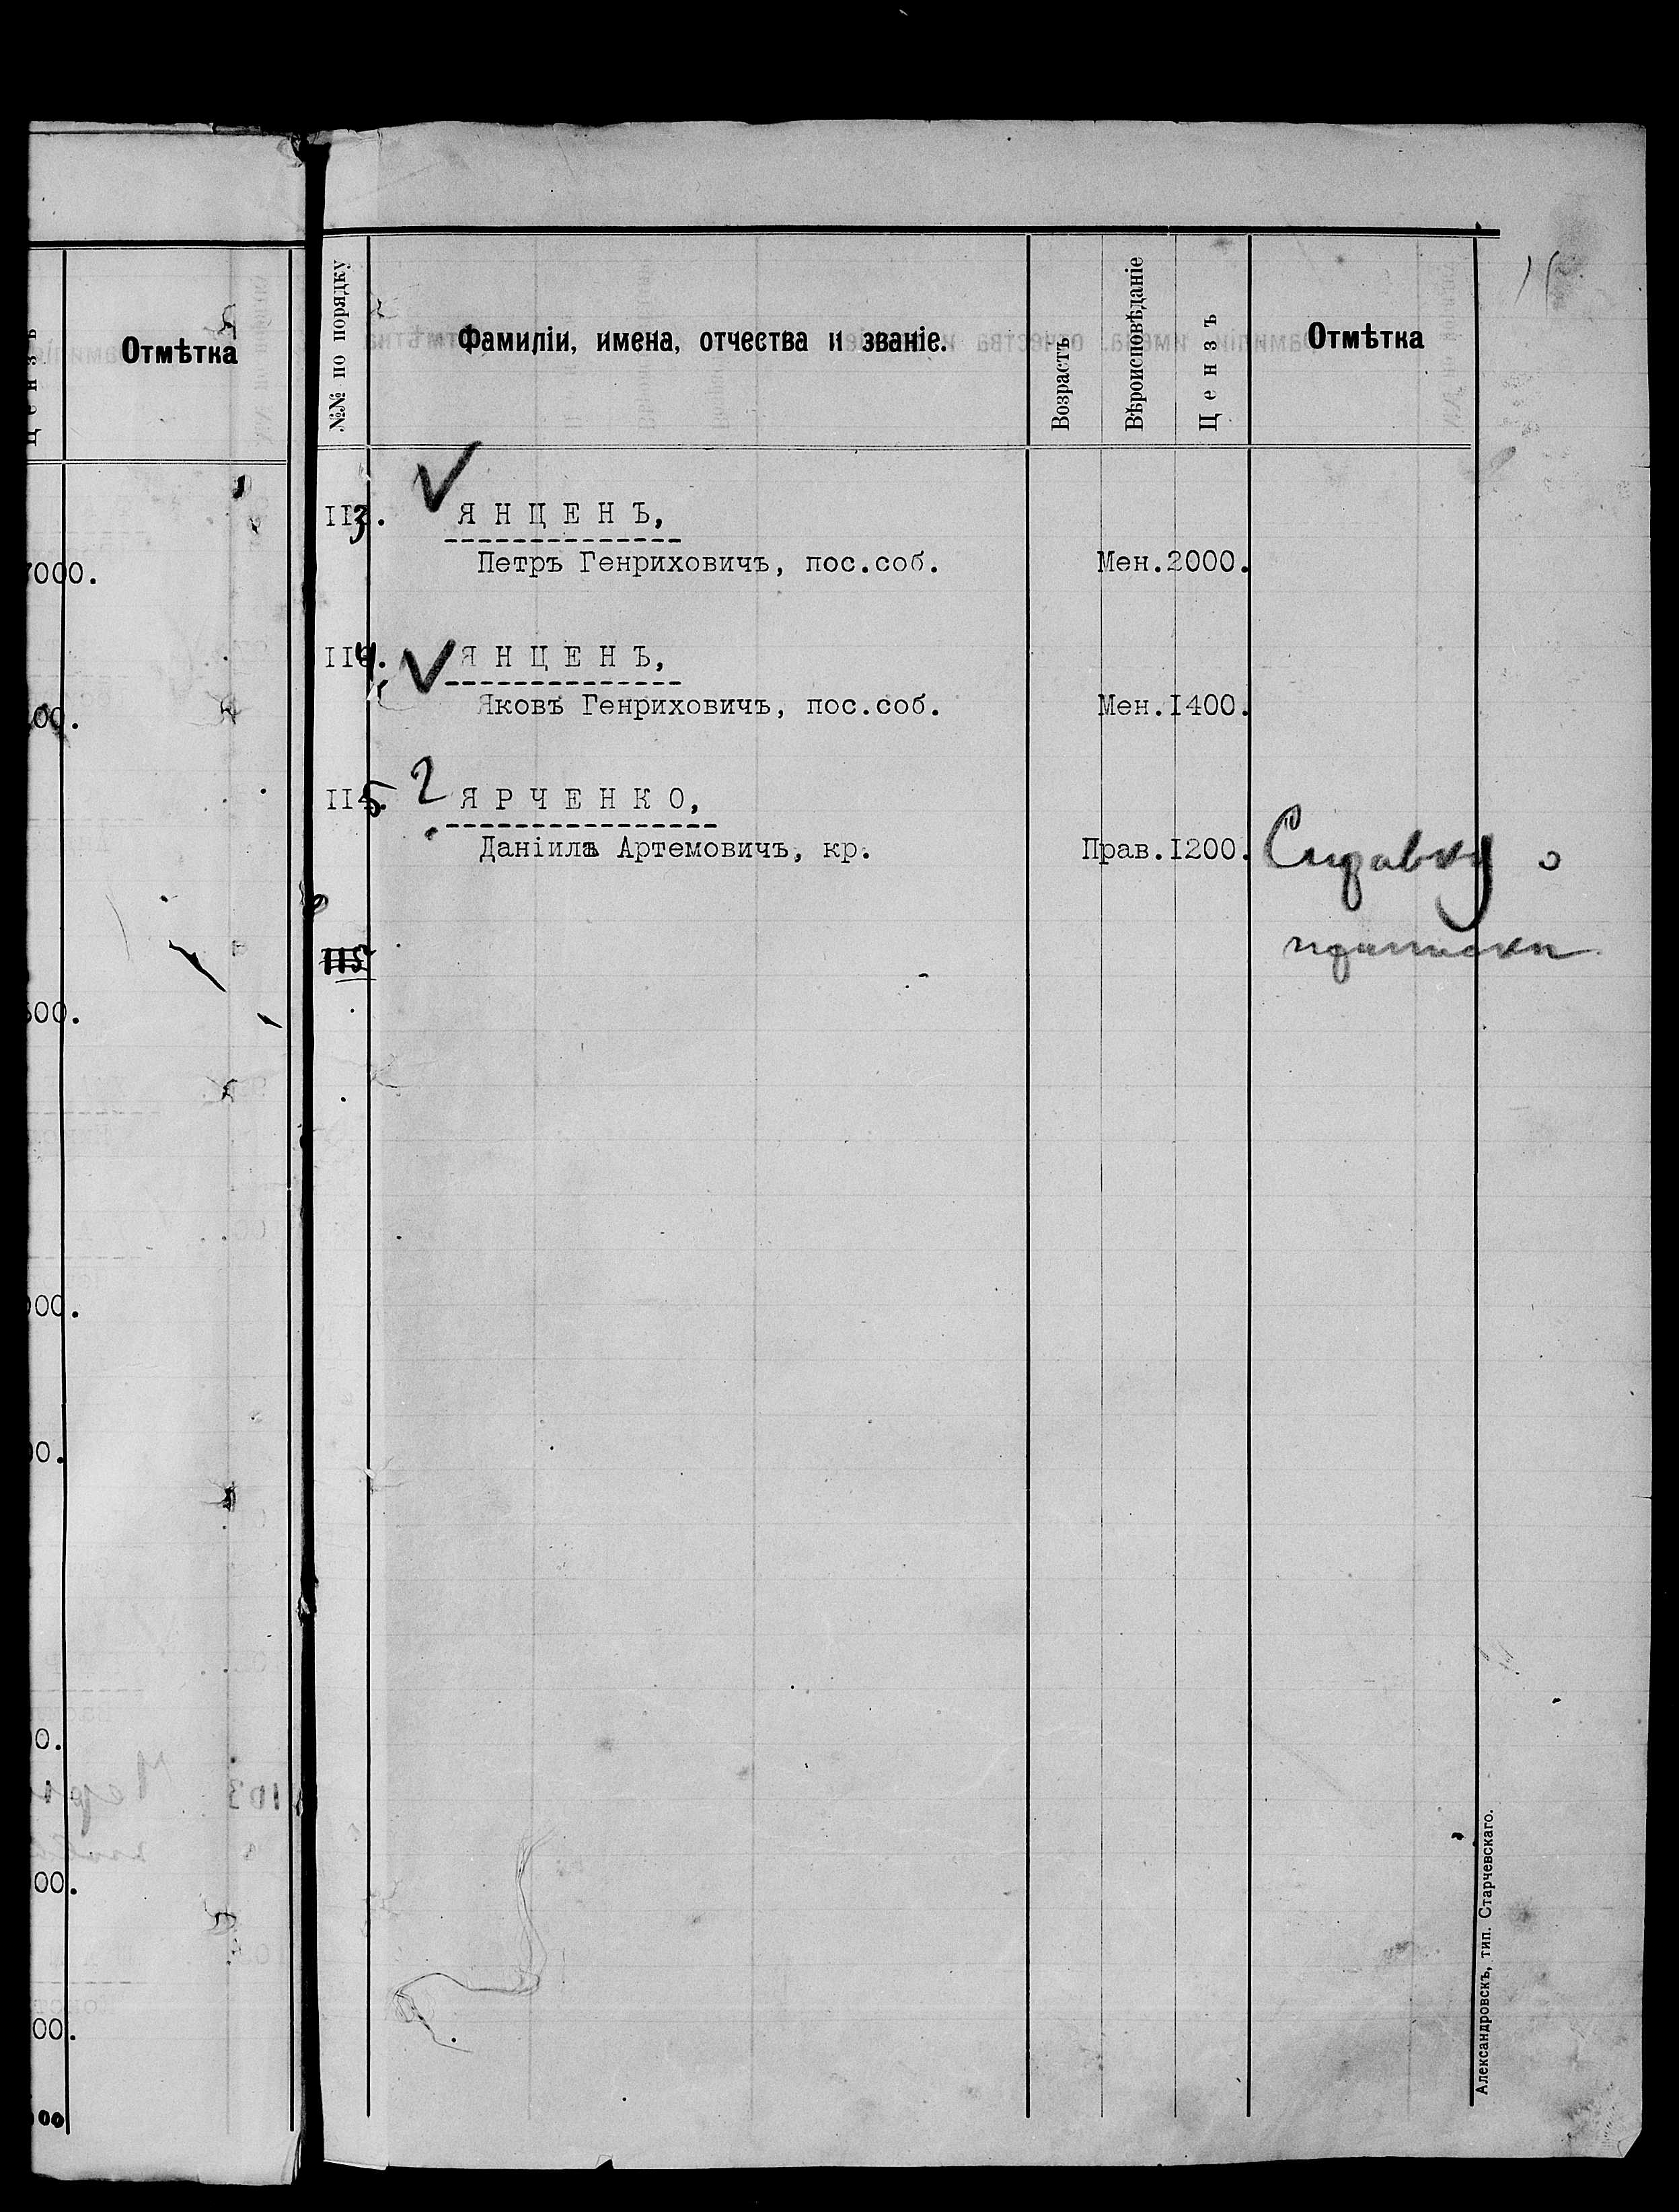 Ц е н з ъ
Отмѣтка
000.
00.
600.
000.
00.
0.
00.
00.
00
№№ по порядку
Фамиліи, имена, отчества и званіе.
Возрастъ
Вѣроисповѣданіе
Ц е н з ъ
Отмѣтка
II3. Я Н Ц Е Н Ъ,
Петръ Генриховичъ, пос.соб. Мен.2000.
II4. Я Н Ц Е Н Ъ,
Яковъ Генриховичъ, пос.соб. Мен.I400.
II5. ? Я Р Ч Е Н К О,
Даніилъ Артемовичъ, кр. Прав.I200. Справку о
приписки
115
Александровскъ, тип. Старчевскаго.